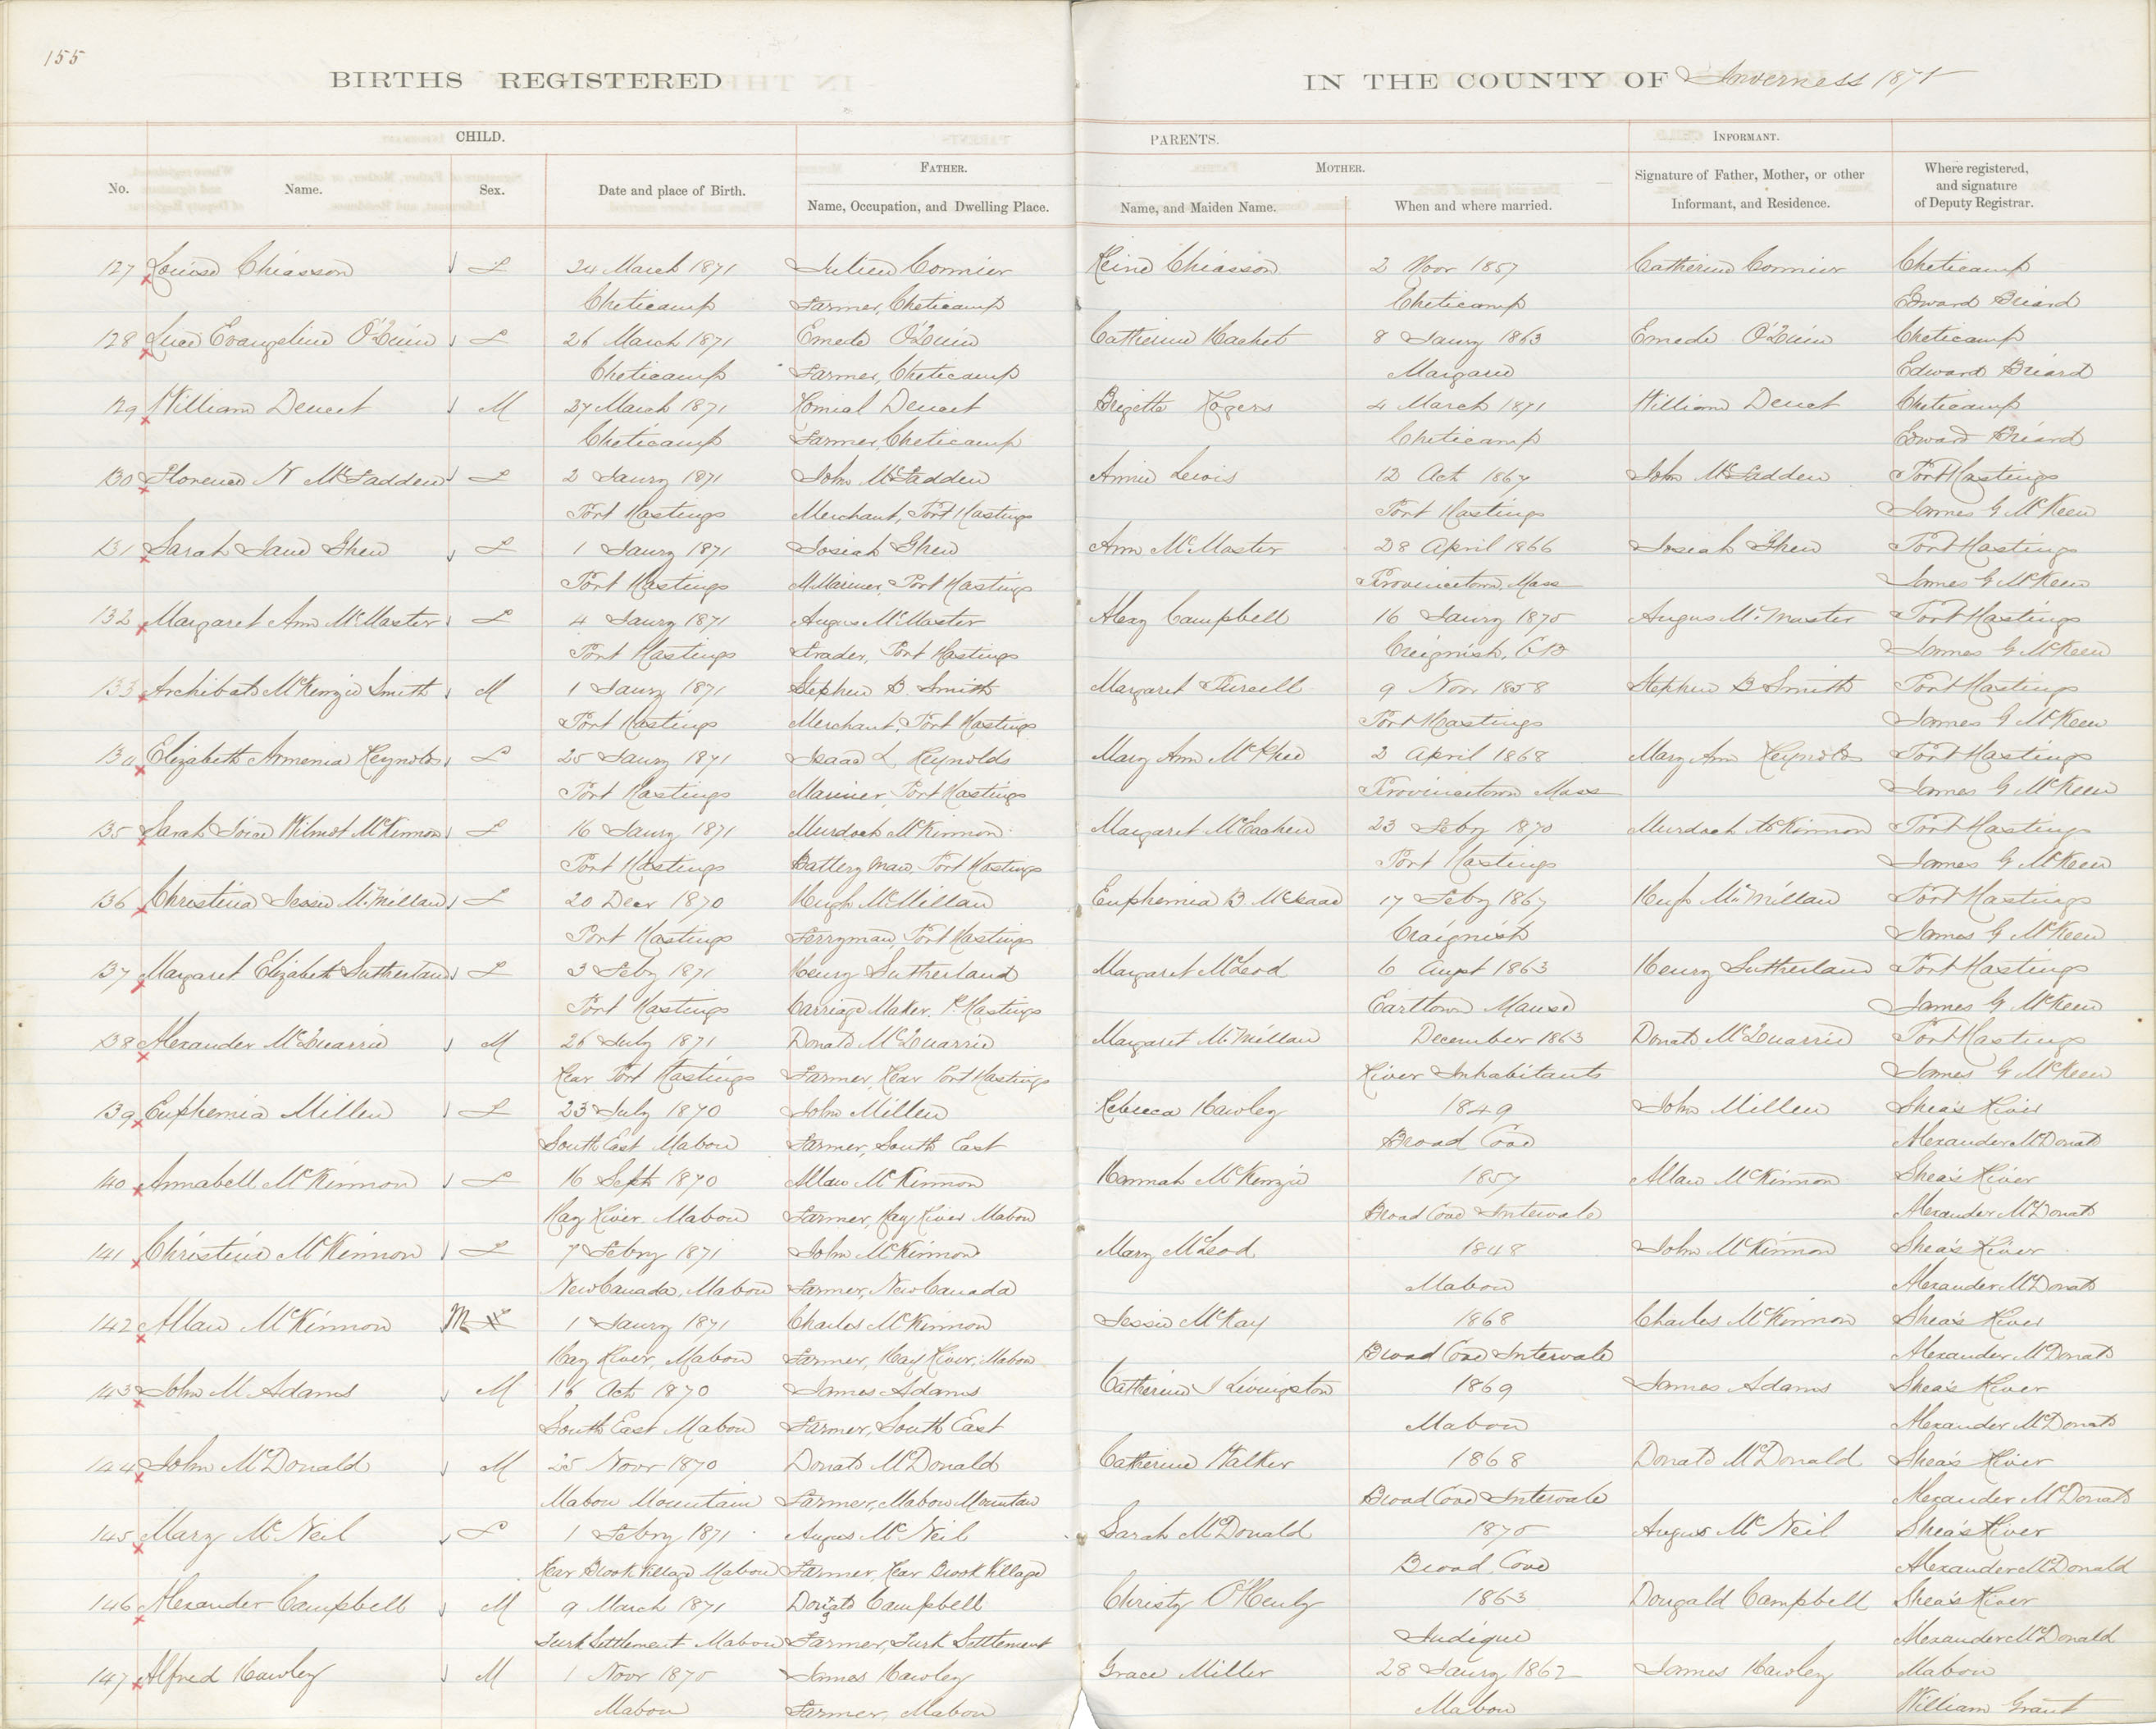 155
BIRTHS REGISTERED IN THE COUNTY OF Inverness 1871
CHILD. PARENTS. INFORMANT.
No. Name. Sex. Date and place of Birth. FATHER. MOTHER. Signature of Father, Mother, or other Where registered,
Name, Occupation, and Dwelling Place. Name, and Maiden Name. When and where married. Informant, and Residence. and signature
of Deputy Registrar.
127 Louise Chiasson F 24 March 1871 Julien Cormier Reine Chiasson 2 Novr 1857 Catherine Cormier Cheticamp
Cheticamp Farmer, Cheticamp Cheticamp Edward Briard
128 Luce Evangeline O'Quin F 26 March 1871 Emede O'Quin Catherine Hachet 8 Jaury 1863 Emede O'Quin Cheticamp
Cheticamp Farmer, Cheticamp Margaree Edward Briard
129 William Deucet M 27 March 1871 Romial Deucet Brigette Rogers 4 March 1871 William Deucet Cheticamp
Cheticamp Farmer, Cheticamp Cheticamp Edward Briard
130 Florence N McFadden F 2 Jaury 1871 John McFadden Annie Lewis 12 Oct 1867 John McFadden Port Hastings
Port Hastings Merchant, Port Hastings Port Hastings James G McKeen
131 Sarah Jane Ghen F 1 Jaury 1871 Josiah Ghen Ann McMaster 28 April 1866 Josiah Ghen Port Hastings
Port Hastings M.Mariner, Port Hastings Provincetown, Mass James G McKeen
132 Margaret Ann McMaster F 4 Jaury 1871 Angus McMaster Mary Campbell 16 Jaury 1870 Angus McMaster Port Hastings
Port Hastings Trader, Port Hastings Creignish, CB James G McKeen
133 Archibald McKenzie Smith M 1 Jaury 1871 Stephen B. Smith Margaret Pursell 9 Novr 1858 Stephen B Smith Port Hastings
Port Hastings Merchant, Port Hastings Port Hastings James G McKeen
134 Elizabeth Armenia Reynolds F 25 Jaury 1871 Isaac L Reynolds Mary Ann McPhee 2 April 1868 Mary Ann Reynolds Port Hastings
Port Hastings Mariner, Port Hastings Provincetown Mass James G McKeen
135 Sarah Wilmot McKinnon F 16 Jaury 1871 Murdoch McKinnon Margaret McEachen 23 Feby 1870 Murdoch McKinnon Port Hastings
Port Hastings Battery Man, Port Hastings Port Hastings James G McKeen
136 Christina Jessie McMillan F 20 Decr 1870 Hugh McMillan Euphemia B McIsaac 17 Feby 1867 Hugh McMillan Port Hastings
Port Hastings Ferryman, Port Hastings Craignish James G McKeen
137 Margaret Elizabeth Sutherland F 3 Feby 1871 Henry Sutherland Margaret McLeod 6 Augst 1863 Henry Sutherland Port Hastings
Port Hastings Carriage Maker, P. Hastings Earltown Manse James G McKeen
138 Alexander McQuarrie M 26 July 1871 Donald McQuarrie Margaret McMillan December 1863 Donald McQuarrie Port Hastings
Rear Port Hastings Farmer, Rear Port Hastings River Inhabitants James G McKeen
139 Euphemia Millen F 23 July 1870 John Millen Rebecca Hawley 1849 John Millen Shea's River
South East Mabou Farmer, South East Broad Cove Alexander McDonald
140 Annabell McKinnon F 16 Sept 1870 Allan McKinnon Hannah McKenzie 1857 Allan McKinnon Shea's River
Hay River. Mabou Farmer, Hay River Mabou Broad Cove Intervale Alexander McDonald
141 Christina McKinnon F 7 Febry 1871 John McKinnon Mary McLeod 1848 John McKinnon Shea's River
New Canada, Mabou Farmer, New Canada Mabou Alexander McDonald
142 Allan McKinnon M F 1 Jaury 1871 Charles McKinnon Jessie McKay 1868 Charles McKinnon Shea's River
Hay River, Mabou Farmer, Hay River, Mabou Broad Cove Intervale Alexander McDonald
143 John M Adams M 16 Oct 1870 James Adams Catherine J Livingston 1869 James Adams Shea's River
South East Mabou Farmer, South East Mabou Alexander McDonald
144 John McDonald M 25 Novr 1870 Donald McDonald Catherine Walker 1868 Donald McDonald Shea's River
Mabou Mountain Farmer, Mabou Mountain Broad Cove Intervale Alexander McDonald
145 Mary McNeil F 1 Febry 1871 Angus McNeil Sarah McDonald 1870 Angus McNeil Shea's River
Rear Brook Village Mabou Farmer, Rear Brook Village Broad Cove Alexander McDonald
146 Alexander Campbell M 9 March 1871 Campbell Christy O'Henly 1863 Dougald Campbell Shea's River
Turk Settlement Mabou Farmer, Turk Settlement Judique Alexander McDonald
147 Alfred Hawley M 1 Novr 1870 James Hawley Grace Miller 28 Jaury 1862 James Hawley Mabou
Mabou Farmer, Mabou Mabou William Grant